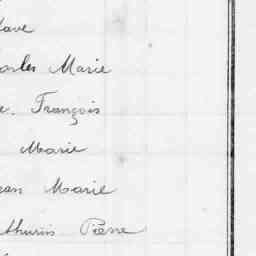 lave
arles Marie
e. François
Marie
ean Marie
athurin Pierre